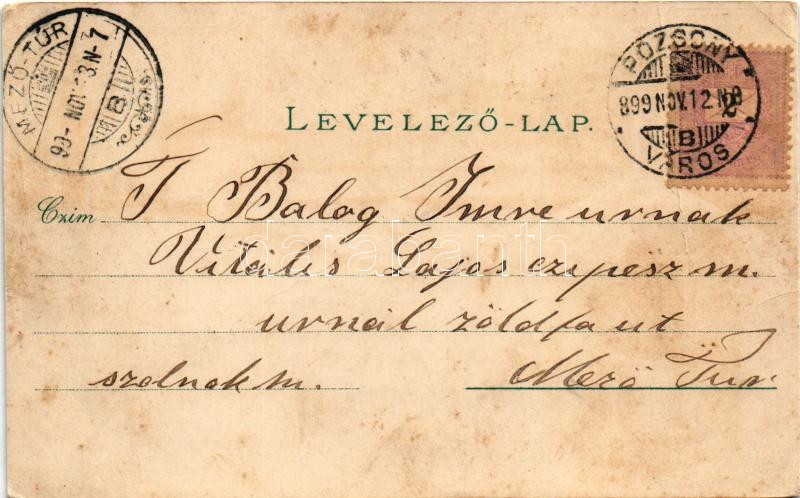 MEZŐ-TÚR
99- NOV. 13. N-7
B
POZSONY
899 NOV. 12. N 9
B
VÁROS
2
LEVELEZŐ-LAP.
Czim T Balog Imre urnak
Vitális Lajos czipész m.
urnál zöldfa ut
szolnok m. Mező Tur
darabanth